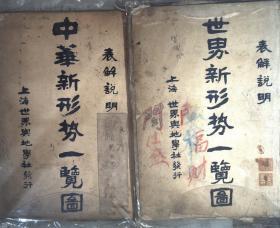 中華新形势一覽圖
表解説明
上海 世界輿地學社發行
世界新形势一覽圖
表解説明
上海 世界輿地學社發行
福財